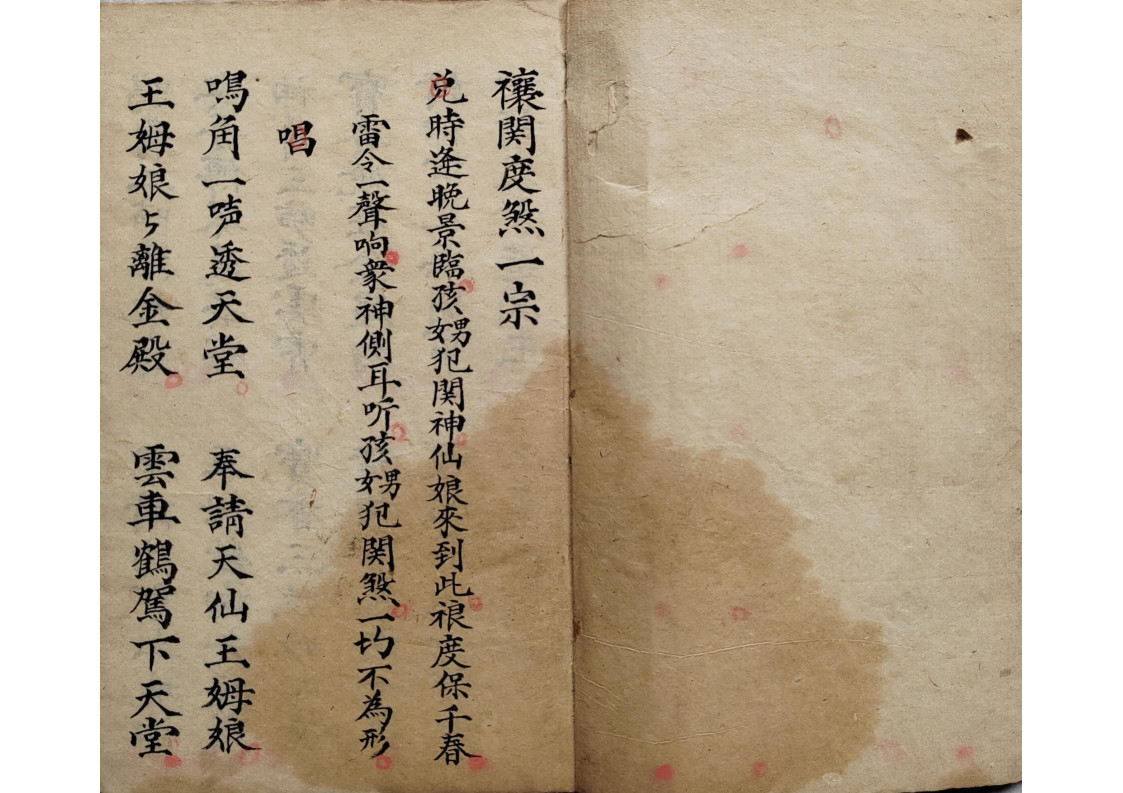 禳関度煞一宗
兑時逢晚景臨孩娚犯関神仙娘來到此禳度保千春
雷令一聲响衆神側耳听孩娚犯関煞一切不為形
唱
鳴角一声透天堂 奉請天仙王姆娘
王姆娘々離金殿 雲車鶴駕下天堂